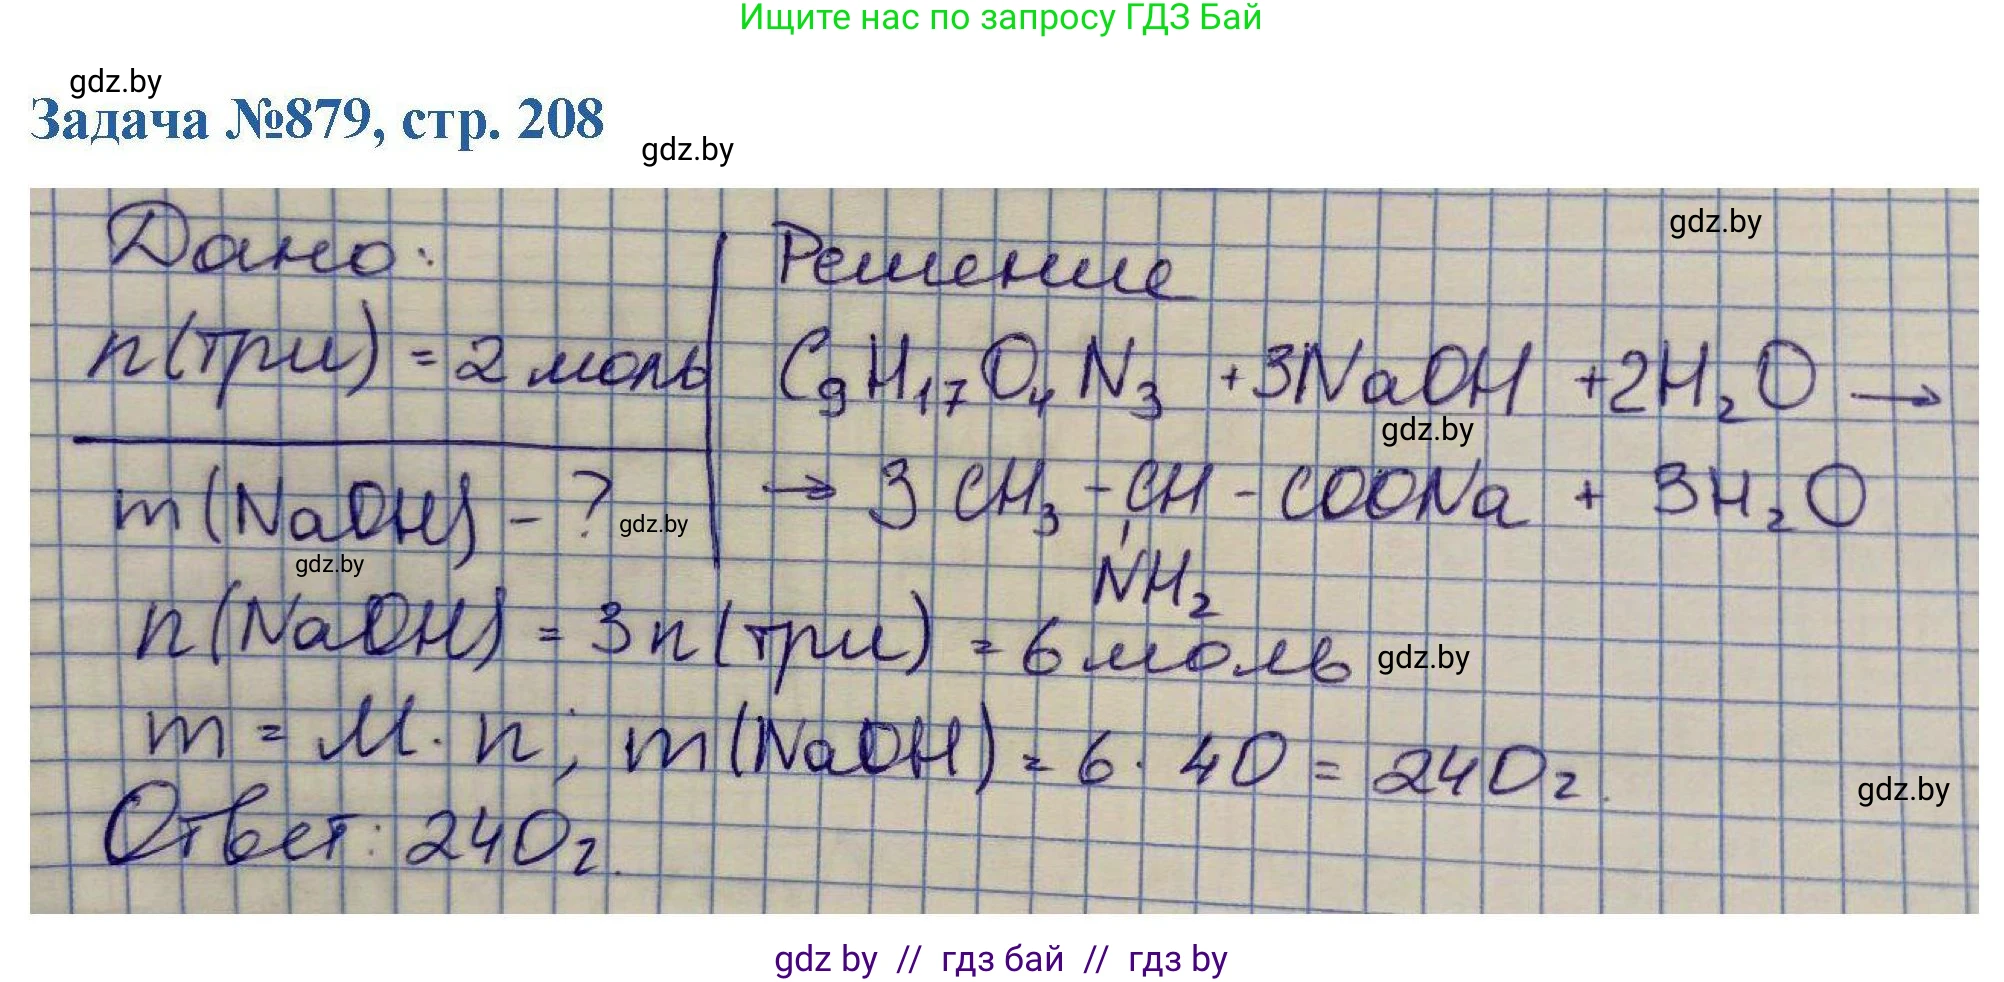 Ищите нас по запросу ГДЗ Бай
gdz.by
Задача №879, стр. 208
gdz.by
Дано:
Решение
gdz.by
n(три) = 2 моль
C₉H₁₇O₄N₃ + 3NaOH + 2H₂O →
gdz.by
m(NaOH) - ?
→ 3 CH₃ - CH - COONa + 3H₂O
gdz.by
gdz.by
NH₂
n(NaOH) = 3n(три) = 6 моль
gdz.by
m = M · n; m(NaOH) = 6 · 40 = 240г.
gdz.by
Ответ: 240г.
gdz by // гдз бай // гдз by